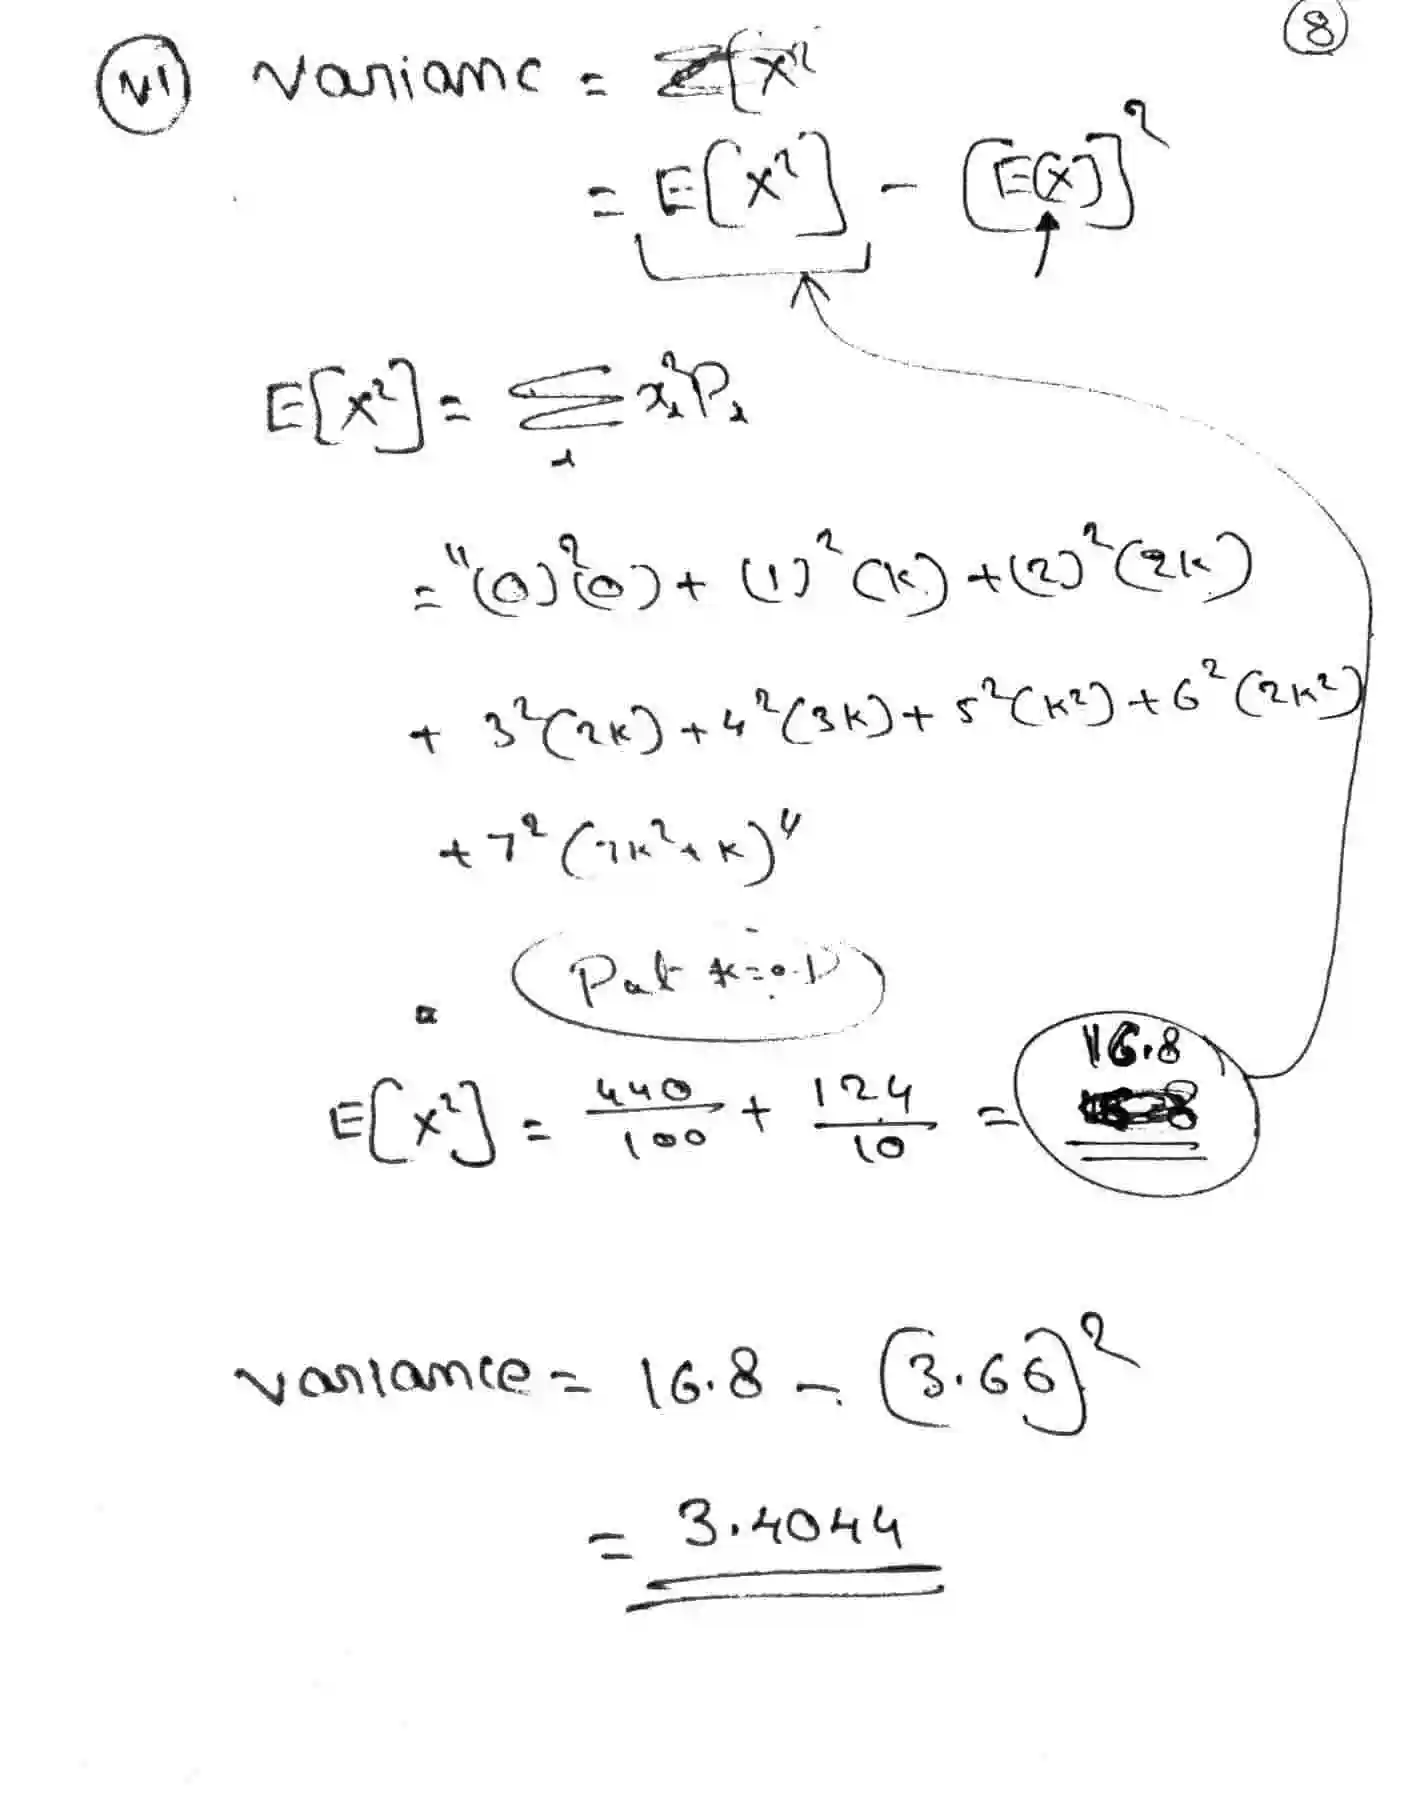 8
VI Varianc = Σ[X²
= E[X²] - [E(X)]²
E[X²] = Σ xᵢ²Pᵢ
i
= "(0)²(0) + (1)²(K) + (2)²(2K)
+ 3²(2K) + 4²(3K) + 5²(K²) + 6²(2K²)
+ 7²(7K²+K)"
Put K=0.1
16.8
E[X²] = 440/100 + 124/10 =
Variance = 16.8 - (3.66)²
= 3.4044